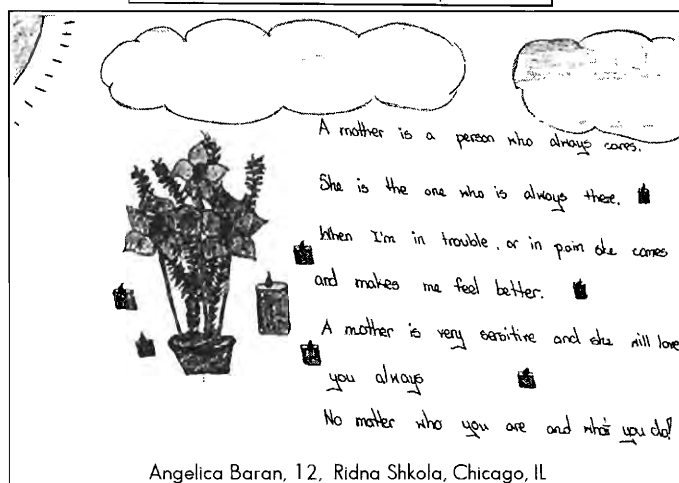 A mother is a person who always cares.
She is the one who is always there.
When I'm in trouble, or in pain she comes
and makes me feel better.
A mother is very sensitive and she will love
you always
No matter who you are and what you do!
Angelica Baran, 12, Ridna Shkola, Chicago, IL